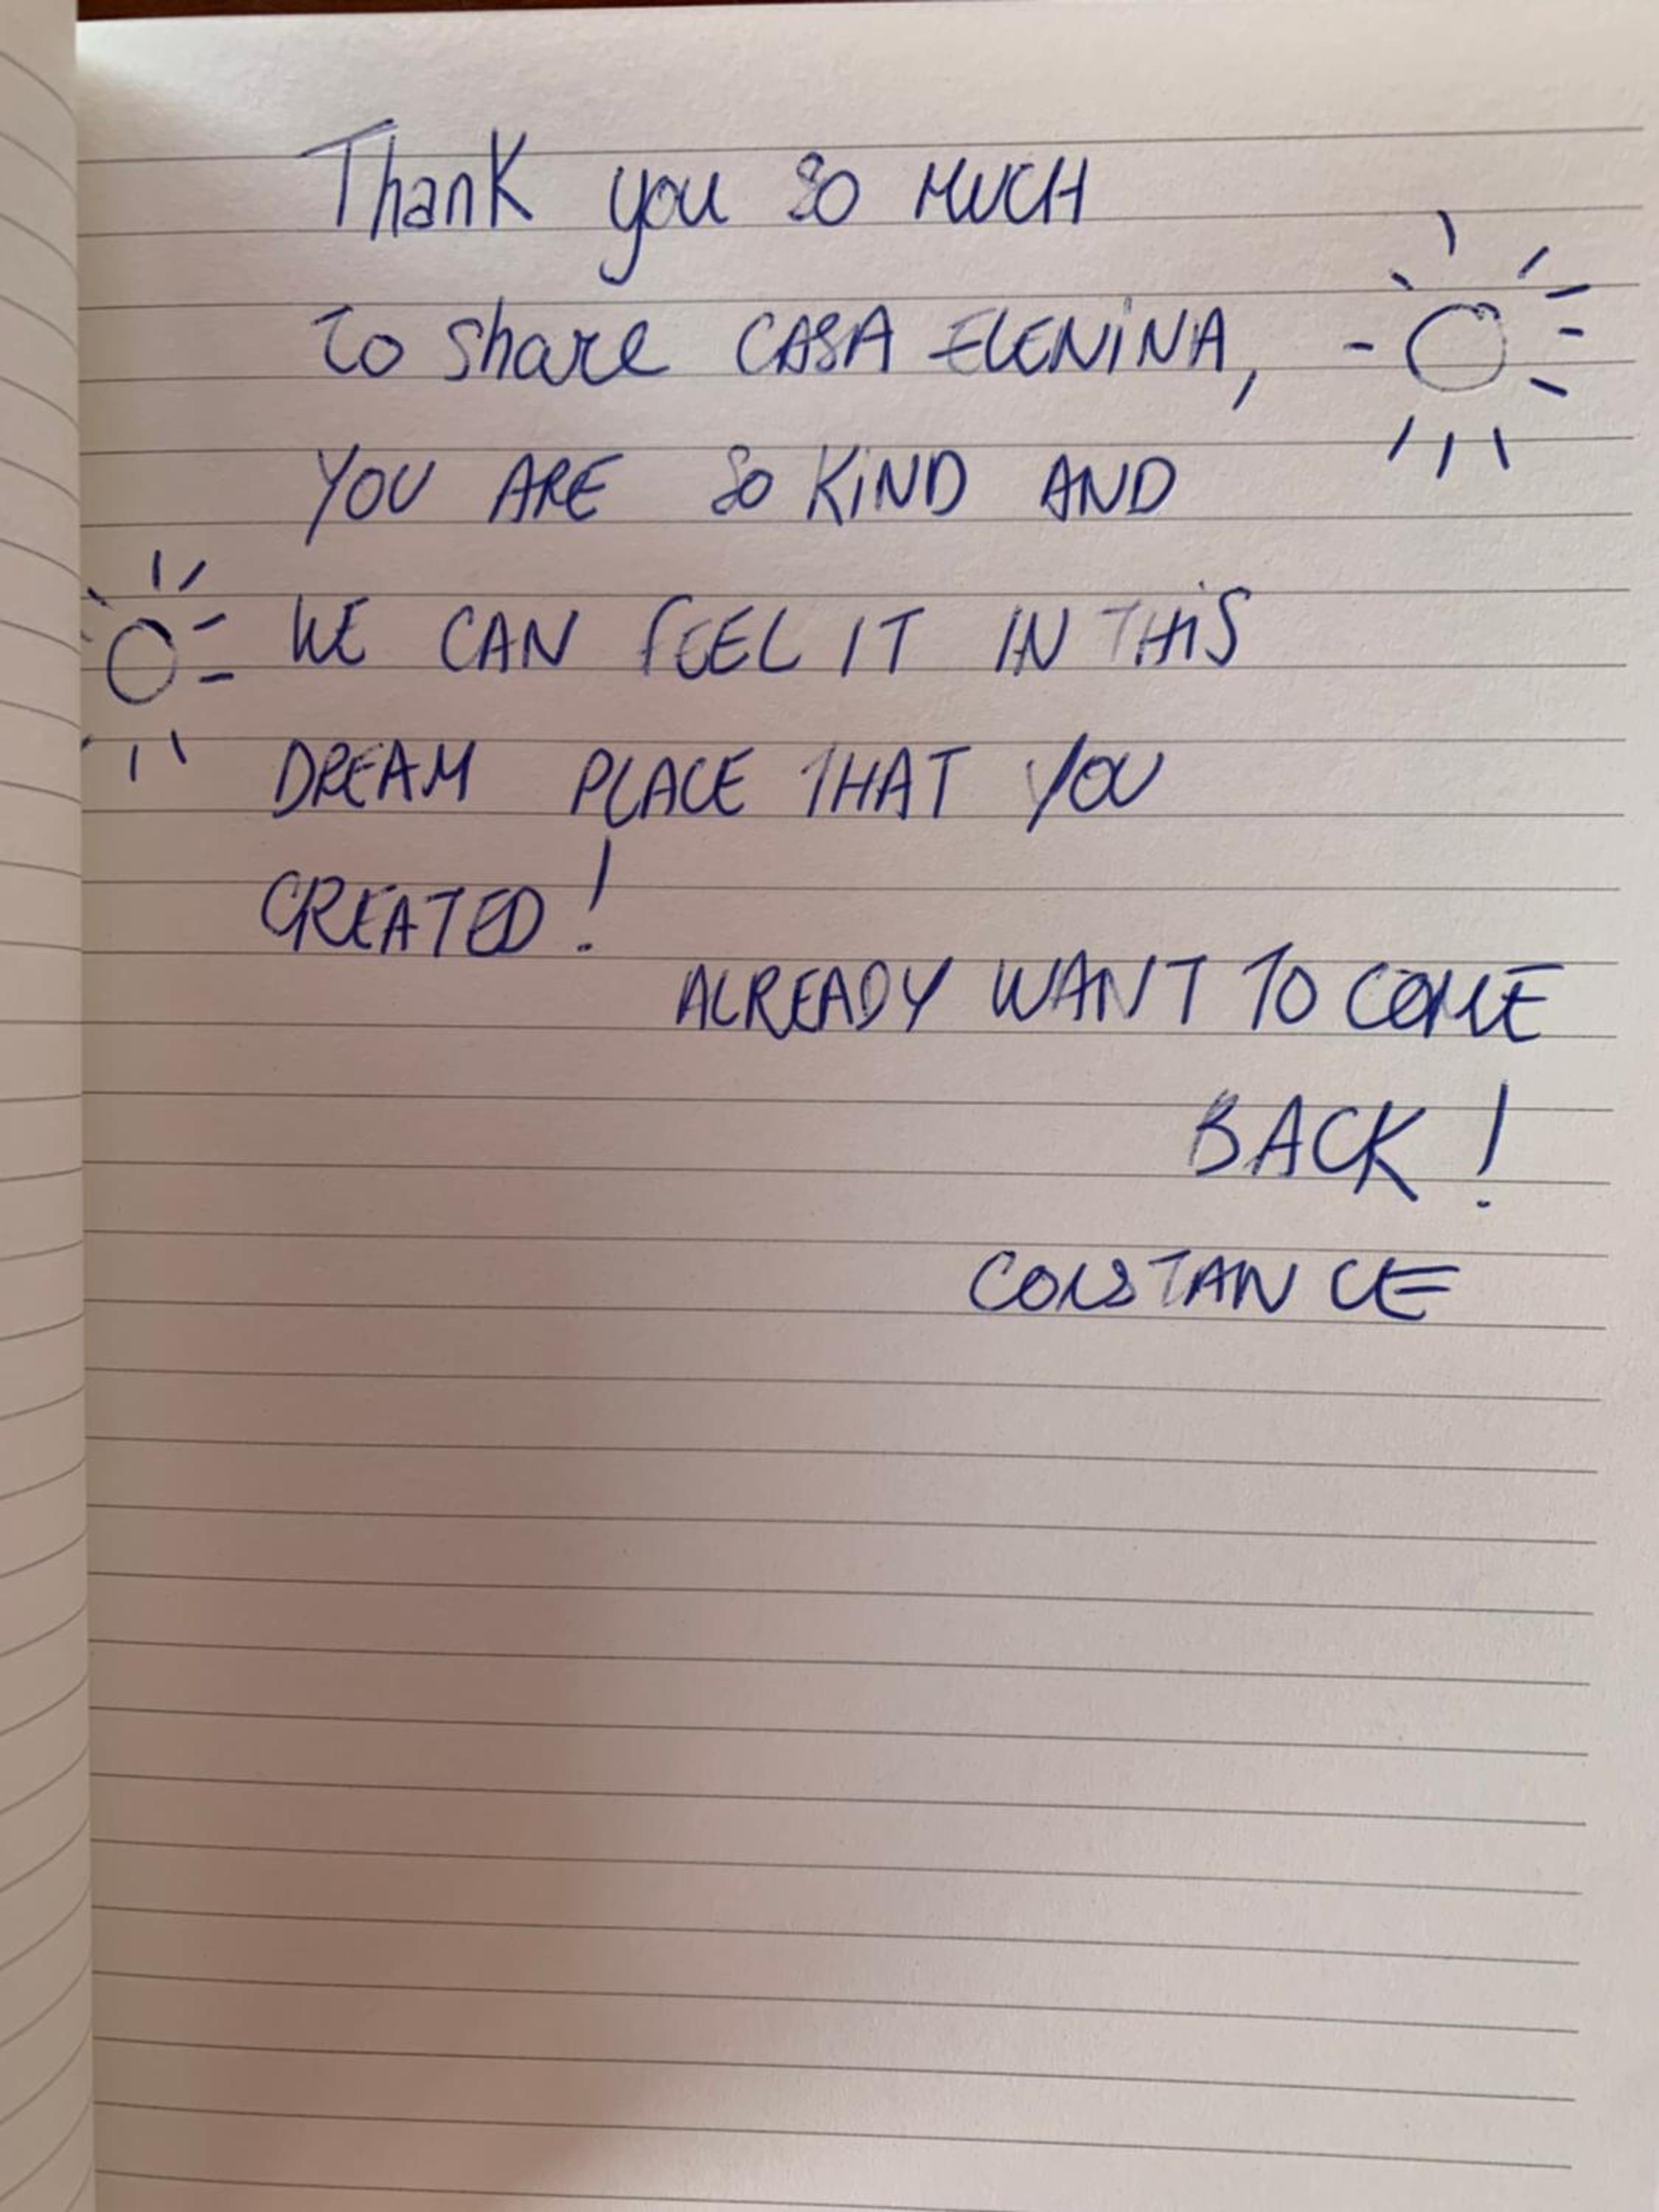 Thank you so MUCH
To share CASA ELENINA,
YOU ARE So KiND AND
WE CAN FEEL IT IN THiS
DREAM PLACE THAT YOU
CREATED!
ALREADY WANT TO COME
BACK!
CONSTANCE